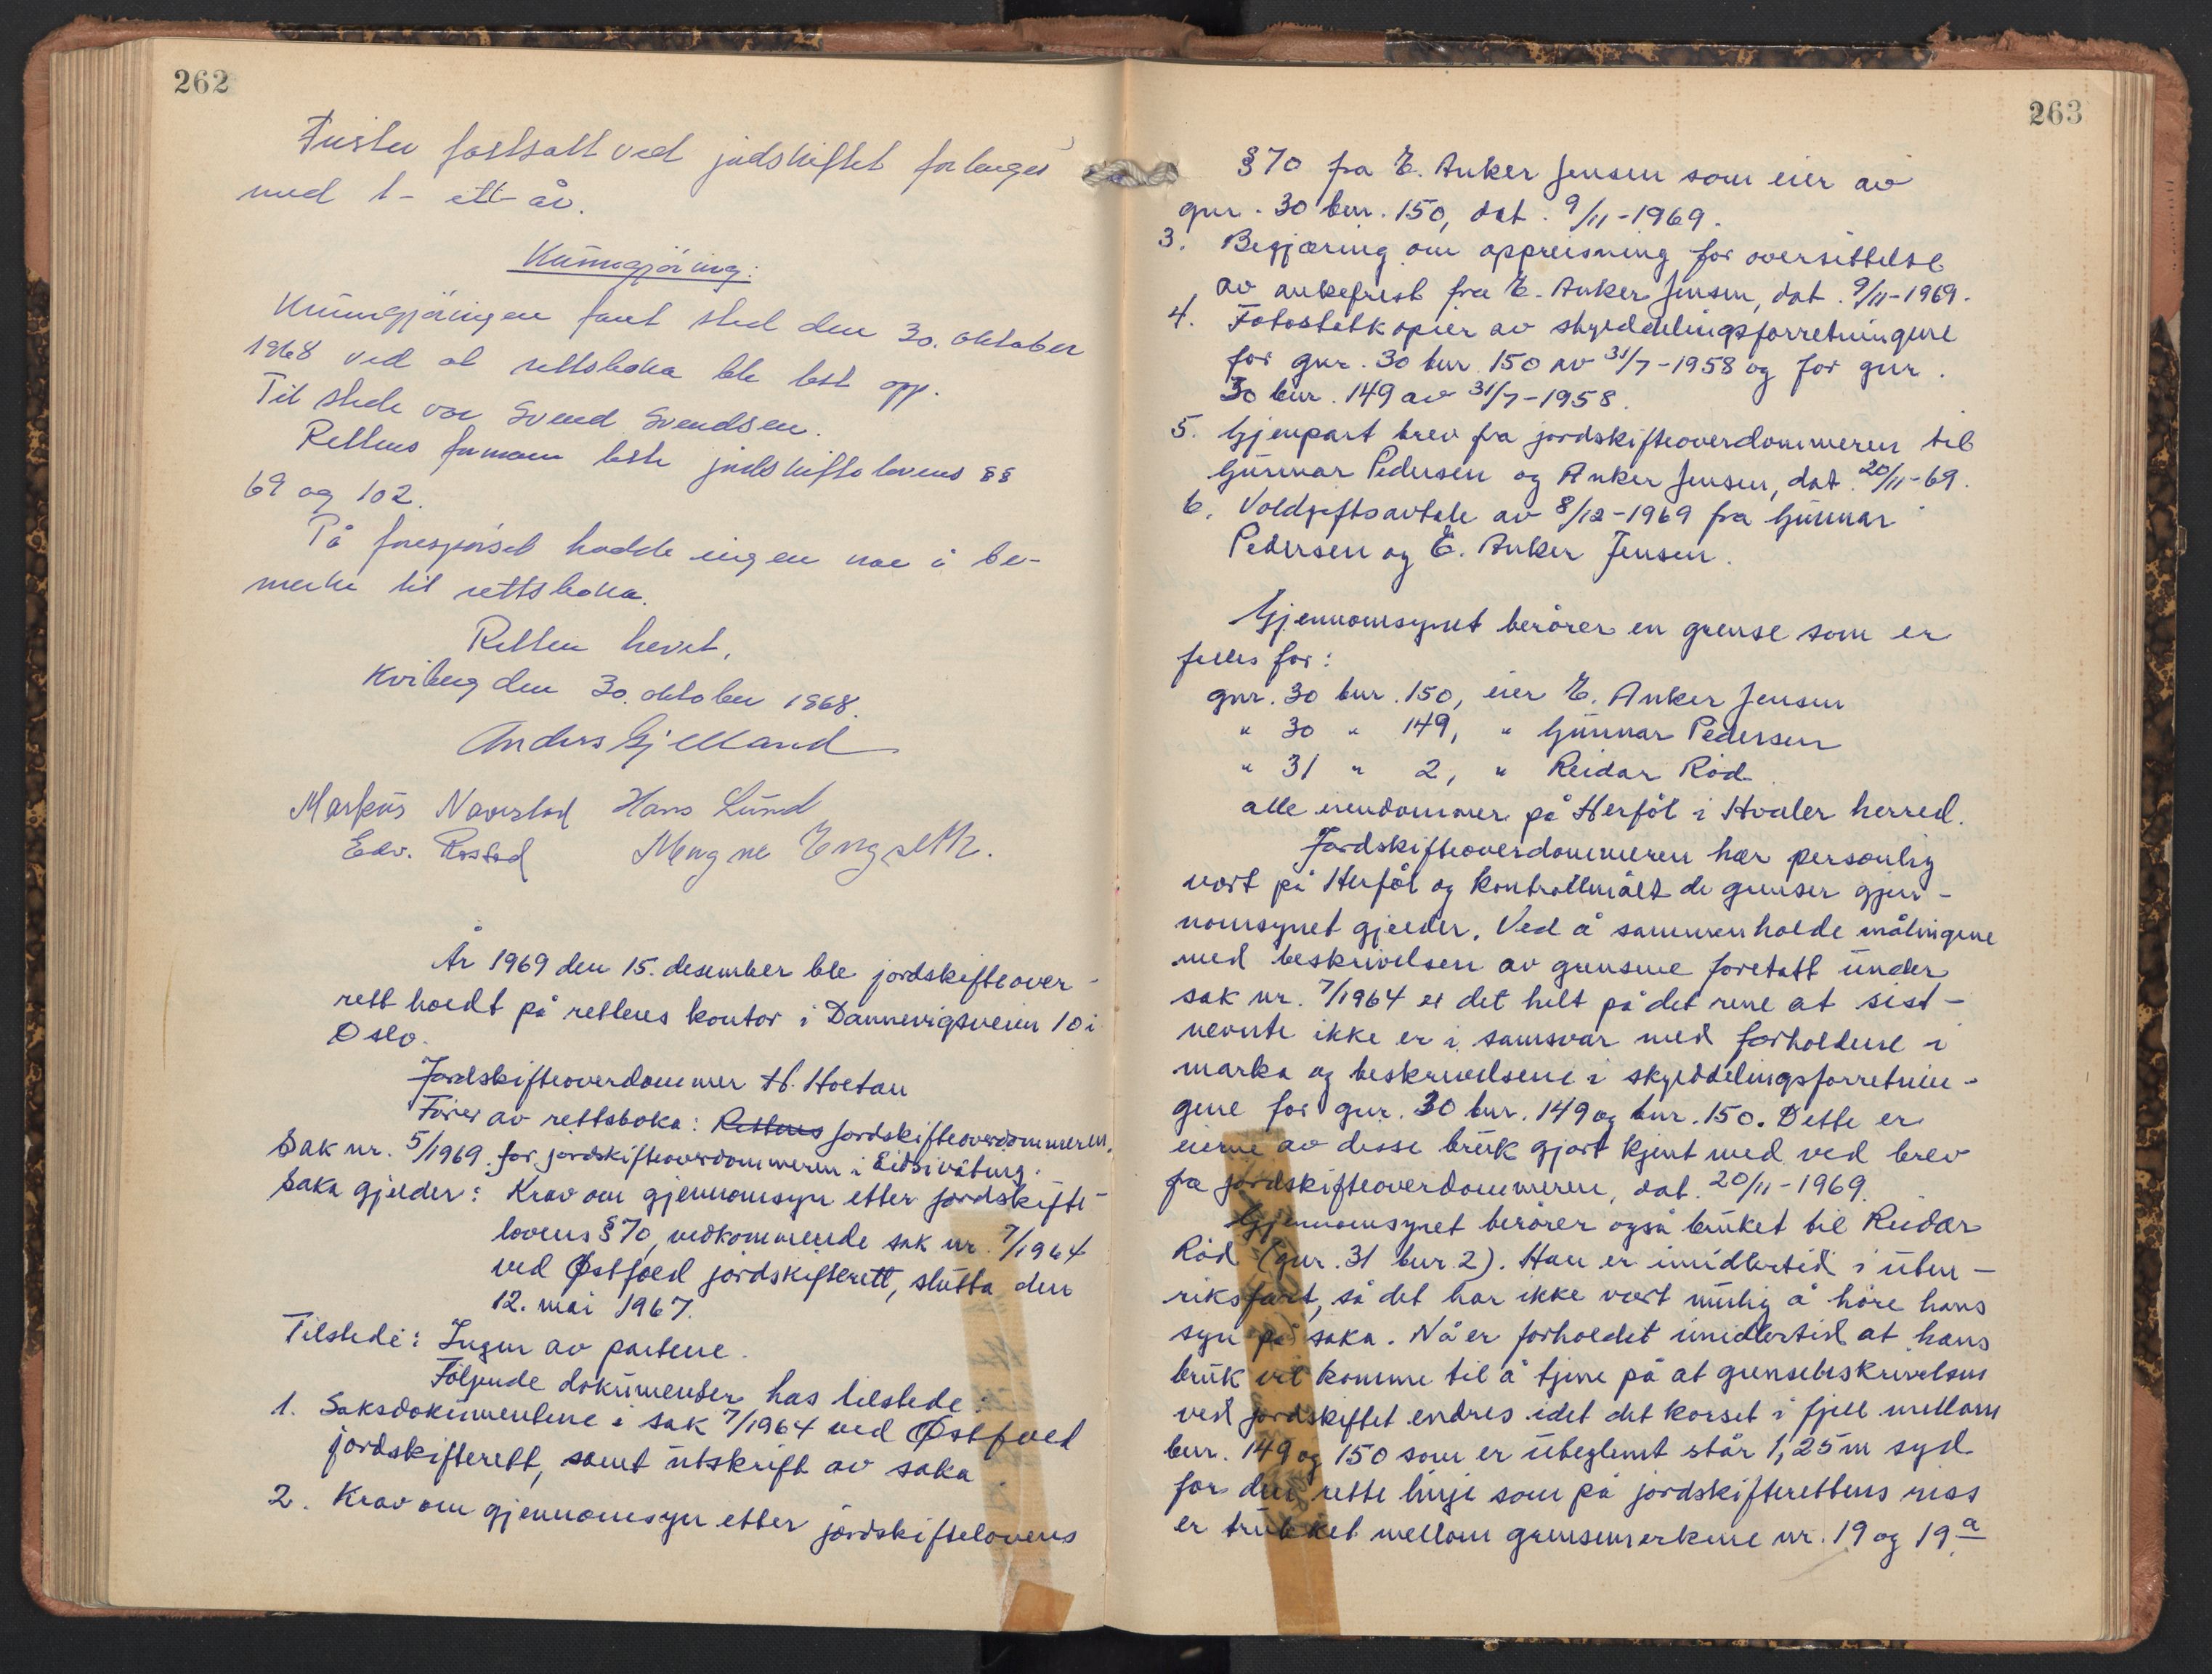 262
Fristen fastsatt ved jordskiftet forlenges
med 1 - ett år.
Kunngjöring:
Kunngjöringen fant sted den 30. oktober
1968 ved at rettsboka ble lest opp.
Til stede var Svend Svendsen.
Rettens formann leste jordskiftelovens §§
69 og 102.
På forespörsel hadde ingen noe å be-
merke til rettsboka.
Retten hevet.
Kviberg den 30. oktober 1968.
Anders Gjelland
Markus Navestad Hans Lund
Edv. Rostad Magne Engseth.
År 1969 den 15. desember ble jordskifteover-
rett holdt på rettens kontor i Dannevigsveien 10 i
Oslo.
Jordskifteoverdommer H. Hoctan
Förer av rettsboka: Rettens jordskifteoverdommeren.
Sak nr. 5/1969 for jordskifteoverdommeren i Eidsivating.
Saka gjelder: Krav om gjennomsyn etter jordskifte-
lovens §70, vedkommende sak nr. 7/1964
ved Østfold jordskifterett, slutta den
12. mai 1967.
Tilstede: Ingen av partene.
Fölgende dokumenter has tilstede:
1. Saksdokumentene i sak 7/1964 ved Østfold
jordskifterett, samt utskrift av saka
2. Krav om gjennomsyn etter jordskiftelovens
263
§70 fra E. Anker Jensen som eier av
gnr. 30 bnr. 150, dat. 9/11-1969.
3. Begjæring om oppreisning for oversittelse
av ankefrist fra E. Anker Jensen, dat. 9/11-1969.
4. Fotostatkopier av skylddelingsforretningene
for gnr. 30 bnr. 150 av 31/7-1958 og for gnr.
30 bnr. 149 av 31/7-1958.
5. Gjenpart brev fra jordskifteoverdommeren til
Gunnar Pedersen og Anker Jensen, dat. 20/11-69.
6. Voldgiftsavtale av 8/12-1969 fra Gunnar
Pedersen og E. Anker Jensen.
Gjennomsynet berörer en grense som er
felles for:
gnr. 30 bnr. 150, eier E. Anker Jensen
" 30 " 149, " Gunnar Pedersen
" 31 " 2, " Reidar Röd
alle eiendommer på Herföl i Hvaler herred.
Jordskifteoverdommeren har personlig
vært på Herföl og kontrollmålt de grenser gjen-
nomsynet gjelder. Ved å sammenholde målingene
med beskrivelsen av grensene foretatt under
sak nr. 7/1964 er det helt på det rene at sist-
nevnte ikke er i samsvar med forholdene i
marka og beskrivelsene i skylddelingsforretnin-
gene for gnr. 30 bnr. 149 og bnr. 150. Dette er
eierne av disse bruk gjort kjent med ved brev
fra jordskifteoverdommeren, dat. 20/11-1969.
Gjennomsynet berörer også bruket til Reidar
Röd (gnr. 31 bnr. 2). Han er imidlertid i uten-
riksfart, så det har ikke vært mulig å höre hans
syn på saka. Nå er forholdet imidlertid at hans
bruk vil komme til å tjene på at grensebeskrivelsen
ved jordskiftet endres idet det korset i fjell mellom
bnr. 149 og 150 som er uteglemt står 1,25 m syd
for den rette linje som på jordskifterettens riss
er trukket mellom grensemerkene nr. 19 og 19a